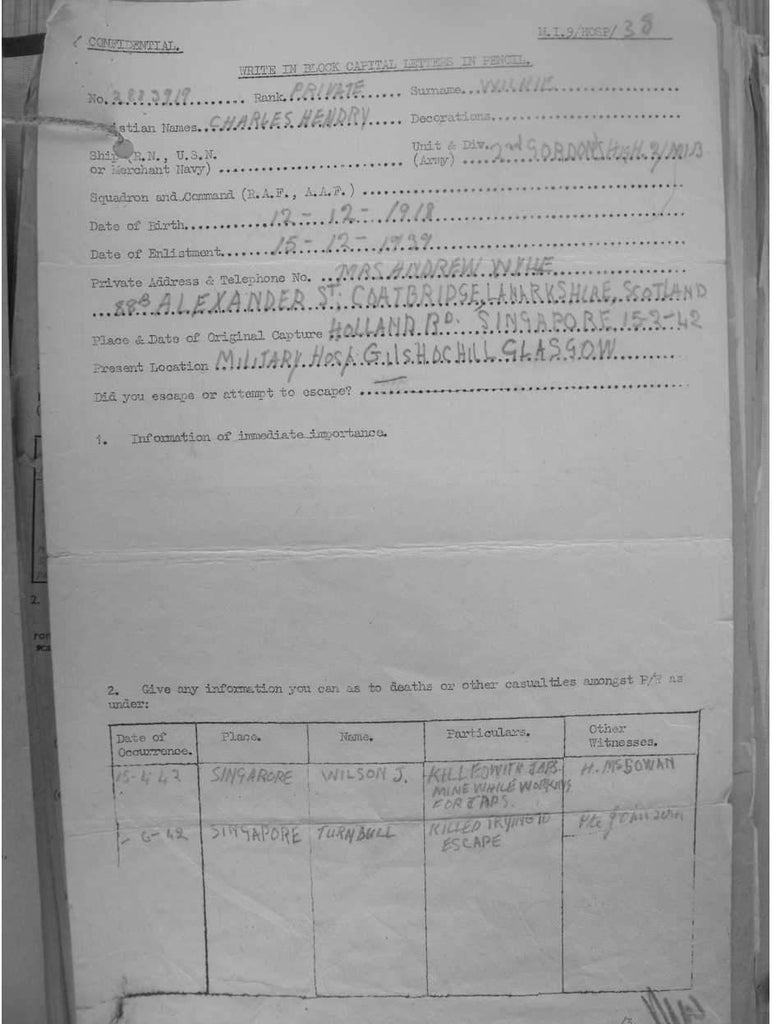 CONFIDENTIAL.
M.I.9/HOSP/38
WRITE IN BLOCK CAPITAL LETTERS IN PENCIL.
No. 2883919 Rank PRIVATE Surname WILKIE
Christian Names CHARLES HENDRY Decorations
Ship (R.N., U.S.N. or Merchant Navy) Unit & Div. (Army) 2nd GORDONS HIGH.
Squadron and Command (R.A.F., A.A.F.)
Date of Birth 12-12-1918
Date of Enlistment 15-12-1939
Private Address & Telephone No. MRS ANDREW
88B ALEXANDER ST; COATBRIDGE, LANARKSHIRE, SCOTLAND
Place & Date of Original Capture HOLLAND RD. SINGAPORE 15-2-42
Present Location MILITARY HOSP. GILSHOCHILL GLASGOW
Did you escape or attempt to escape? —
1. Information of immediate importance.
2. Give any information you can as to deaths or other casualties amongst P/W as
under:
Date of Occurrence. Place. Name. Particulars. Other Witnesses.
15-4-42 SINGAPORE WILSON J. KILLED WITH JAPS MINE WHILE WORKING FOR JAPS. H. McGOWAN
- 6-42 SINGAPORE TURNBULL KILLED TRYING TO ESCAPE Pte
2.